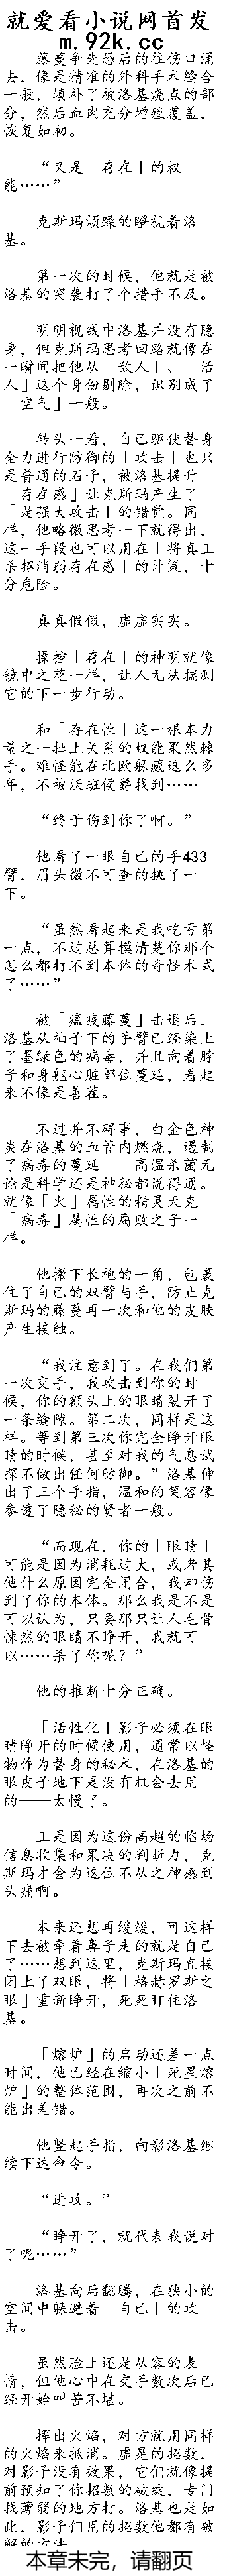 就爱看小说网首发
m.92k.cc
藤蔓争先恐后的往伤口涌
去，像是精准的外科手术缝合
一般，填补了被洛基烧点的部
分，然后血肉充分增殖覆盖，
恢复如初。
“又是「存在丨的权
能……”
克斯玛烦躁的瞪视着洛
基。
第一次的时候，他就是被
洛基的突袭打了个措手不及。
明明视线中洛基并没有隐
身，但克斯玛思考回路就像在
一瞬间把他从丨敌人丨、丨活
人」这个身份剔除，识别成了
「空气」一般。
转头一看，自己驱使替身
全力进行防御的丨攻击丨也只
是普通的石子，被洛基提升
「存在感」让克斯玛产生了
「是强大攻击丨的错觉。同
样，他略微思考一下就得出，
这一手段也可以用在丨将真正
杀招消弱存在感」的计策，十
分危险。
真真假假，虚虚实实。
操控「存在」的神明就像
镜中之花一样，让人无法揣测
它的下一步行动。
和「存在性」这一根本力
量之一扯上关系的权能果然棘
手。难怪能在北欧躲藏这么多
年，不被沃班侯爵找到……
“终于伤到你了啊。”
他看了一眼自己的手433
臂，眉头微不可查的挑了一
下。
“虽然看起来是我吃亏第
一点，不过总算摸清楚你那个
怎么都打不到本体的奇怪术式
了……”
被「瘟疫藤蔓」击退后，
洛基从袖子下的手臂已经染上
了墨绿色的病毒，并且向着脖
子和身躯心脏部位蔓延，看起
来不像是善茬。
不过并不碍事，白金色神
炎在洛基的血管内燃烧，遏制
了病毒的蔓延——高温杀菌无
论是科学还是神秘都说得通。
就像「火」属性的精灵天克
「病毒」属性的腐败之子一
样。
他撤下长袍的一角，包裹
住了自己的双臂与手，防止克
斯玛的藤蔓再一次和他的皮肤
产生接触。
“我注意到了。在我们第
一次交手，我攻击到你的时
候，你的额头上的眼睛裂开了
一条缝隙。第二次，同样是这
样。等到第三次你完全睁开眼
睛的时候，甚至对我的气息试
探不做出任何防御。”洛基伸
出了三个手指，温和的笑容像
参透了隐秘的贤者一般。
“而现在，你的丨眼睛丨
可能是因为消耗过大，或者其
他什么原因完全闭合，我却伤
到了你的本体。那么我是不是
可以认为，只要那只让人毛骨
悚然的眼睛不睁开，我就可
以……杀了你呢？”
他的推断十分正确。
「活性化丨影子必须在眼
睛睁开的时候使用，通常以怪
物作为替身的秘术，在洛基的
眼皮子地下是没有机会去用
的——太慢了。
正是因为这份高超的临场
信息收集和果决的判断力，克
斯玛才会为这位不从之神感到
头痛啊。
本来还想再缓缓，可这样
下去被牵着鼻子走的就是自己
了……想到这里，克斯玛直接
闭上了双眼，将丨格赫罗斯之
眼」重新睁开，死死盯住洛
基。
「熔炉」的启动还差一点
时间，他已经在缩小丨死星熔
炉」的整体范围，再次之前不
能出差错。
他竖起手指，向影洛基继
续下达命令。
“进攻。”
“睁开了，就代表我说对
了呢……”
洛基向后翻腾，在狭小的
空间中躲避着丨自己」的攻
击。
虽然脸上还是从容的表
情，但他心中在交手数次后已
经开始叫苦不堪。
挥出火焰，对方就用同样
的火焰来抵消。虚晃的招数，
对影子没有效果，它们就像提
前预知了你招数的破绽，专门
找薄弱的地方打。洛基也是如
此，影子们用的招数他都有破
解的方法
本章未完，请翻页